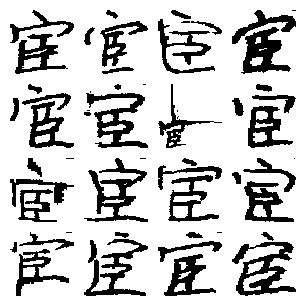 宦宦宦宦
宦宦宦宦
宦宦宦宦
宦宦宦宦